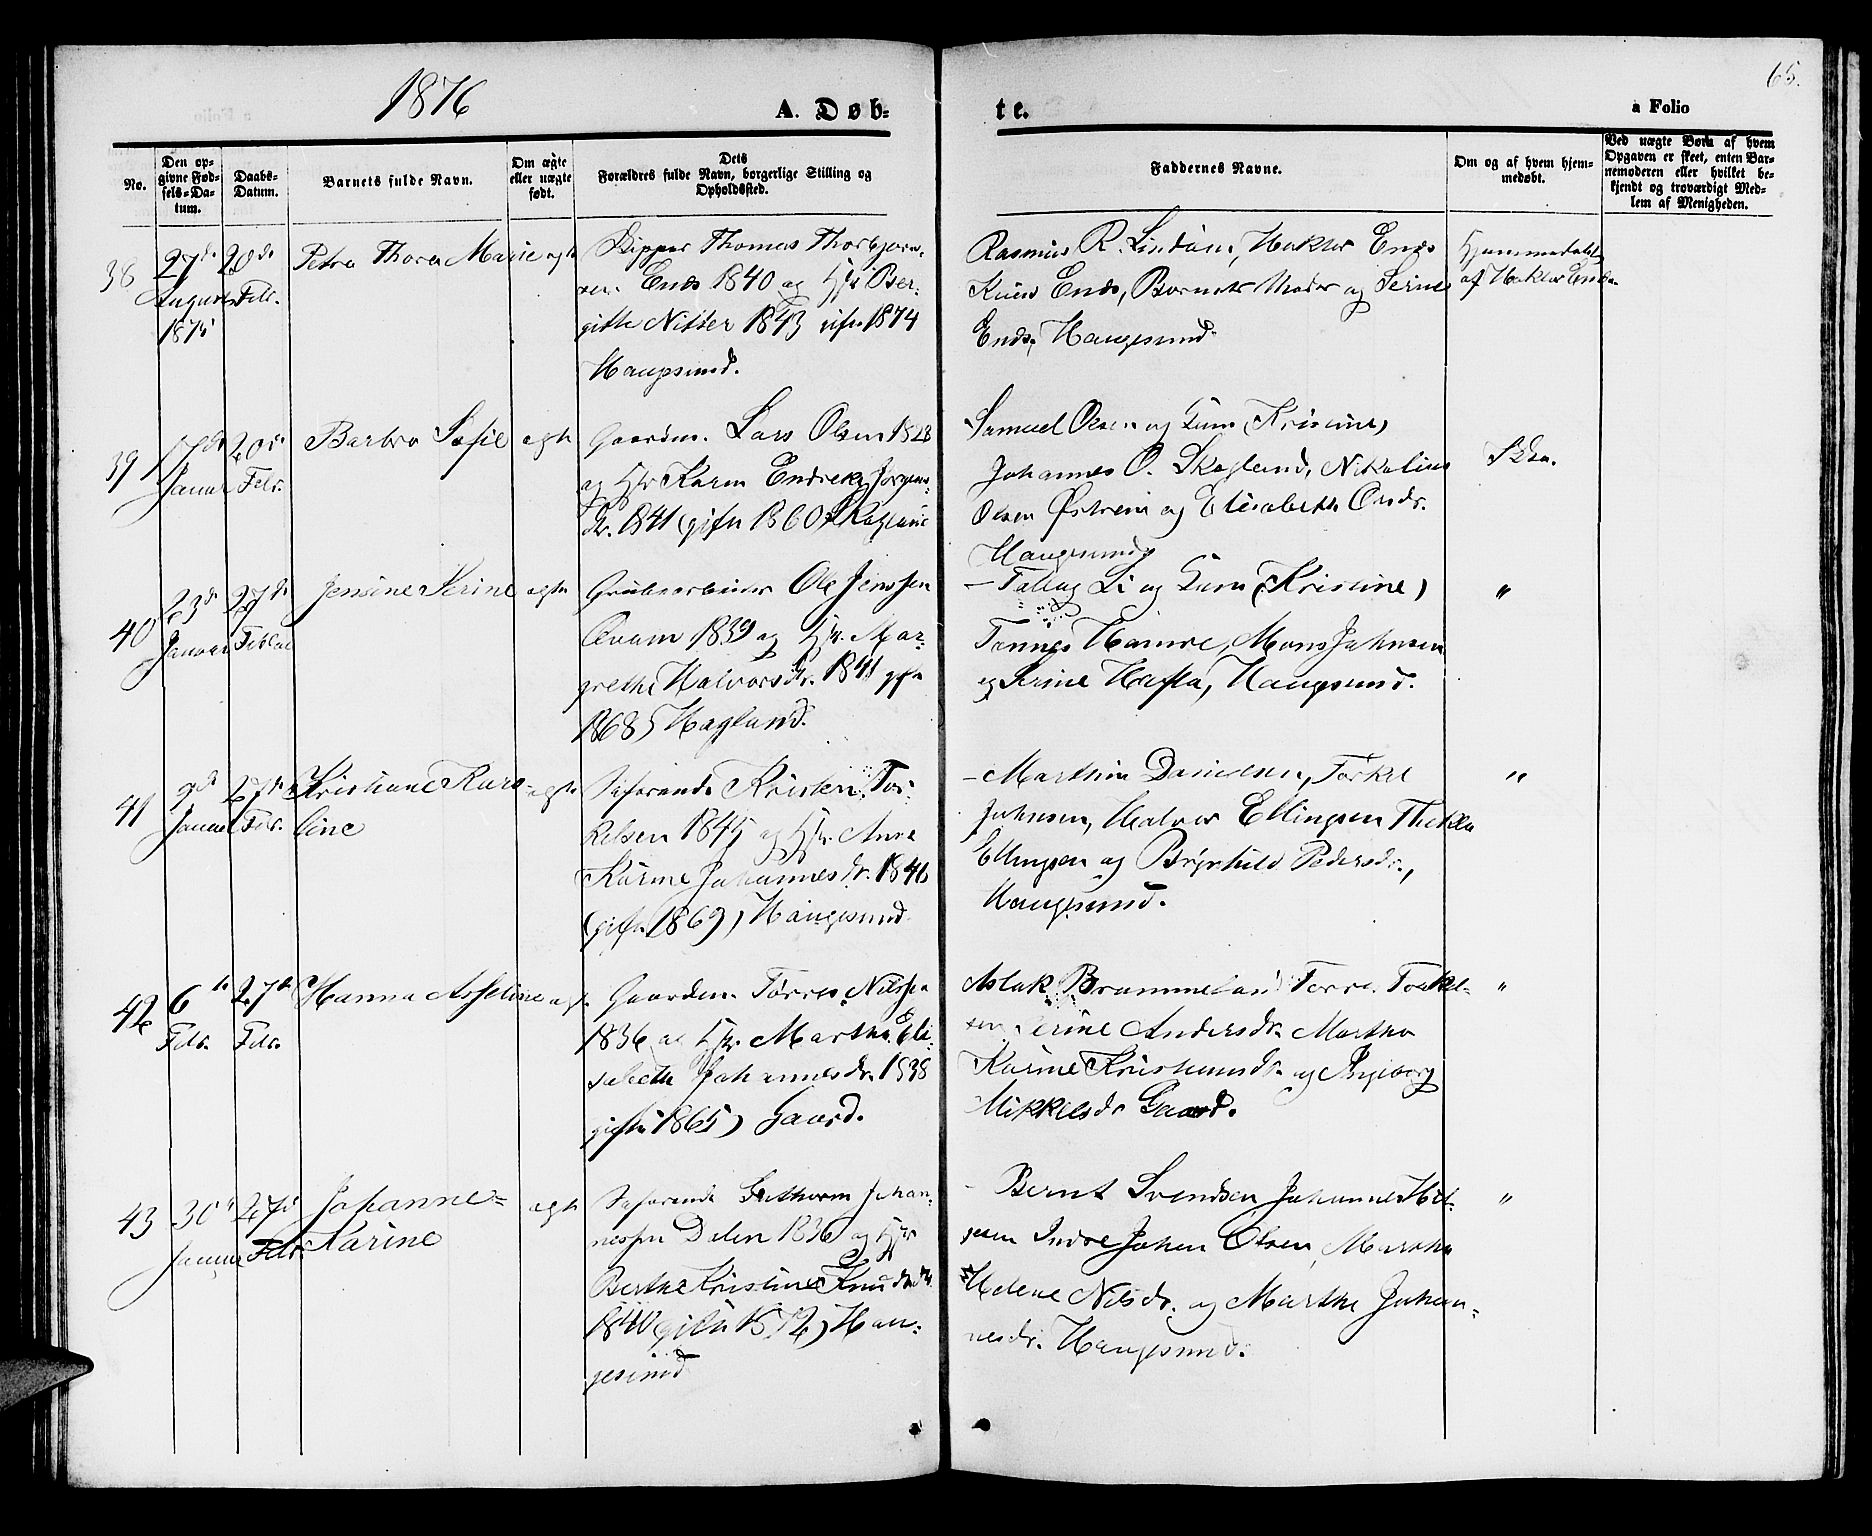 1876
65.
A. Døb-
te.
a Folio
No.
Den op-
givne Fød-
sels-Da-
tum.
Daabs-
Datum.
Barnets fulde Navn.
Om ægte
eller uægte
født.
Dets
Forældres fulde Navn, borgerlige Stilling og
Opholdssted.
Faddernes Navne.
Om og af hvem hjem-
medøbt.
Ved uægte Børn af hvem
Opgaven er skeet, enten Bar-
nemoderen eller hvilket be-
kjendt og troværdigt Med-
lem af Menigheden.
38
27de
August
1875
20de
Febr.
Petra Thora Marie
ægte
Skipper Thomas Thorbjørn-
sen Enes 1840 og Hstr Ber-
gitte Nitter 1843 gift 1874
Haugesund.
Rasmus R. Lindøen, Hektor Enes
Enes, Barnets Moder og Serine
Enes, Haugesund
Hjemmedøbt
af Hektor Enes
39
17de
Januar
20de
Febr.
Barbro Sofie
ægte
Gaardm. Lars Olsen 1828
og Hstr Karen Endrea Jørgens-
dr. 1841 (gifte 1860) Skogland
Samuel Olsen og (Kristine)
Johannes O. Skogland, Nikolius
Olsen Østrem og Elisabeth Olsdr.
Haugesund
40
23de
Januar
27de
Februar
Jensine Serine
ægte
Grubearbeider Ole Jenssen
1839 og Hstr. Mar-
grethe Halvorsdr. 1841 gifte
1868) Hagland.
Li og (Kristine)
Tønnes Hamre, Mons Johnsen
og Serine Haugesund.
"
41
Januar
27de
Febr.
Kristiane Karo-
line
ægte
Søfarende Kristen Tor-
kelsen 1845 og Hstr. Anne
Karine Johannesdr. 1846
(gifte 1869) Haugesund
Marthin Danielsen, Torkel
Johnsen, Halvor Ellingsen Thekla
Ellingsen og Brynhild Pedersdr.,
Haugesund.
"
42
6te
Febr.
27de
Febr.
Hanna Asseline
ægt.
Gaardm. Tørres Nilssen
1836 og Hstr. Martha Eli-
sabeth Johannesdr. 1838
gifte 1865) Gaard.
Aslak Brommeland Torkel-
sen Serine Andersdr. Martha
Karine Kristiansdr. og Ingeborg
Mikkelsdr Gaard.
"
43
30te
Januar
27de
Febr.
Johanne-
Karine
ægte
Søfarende Guthorm Johan-
nessen Dalen 1836 og Hstr
Berthe Kristine Knudsdtr.
1840 (gifte 1872) Hau-
gesund
Bernt Svendsen Johannes Hel-
gesen Indre Johan Olsen, Martha
Helene Nilsdr. og Marthe Johan-
nesdr. Haugesund.
"